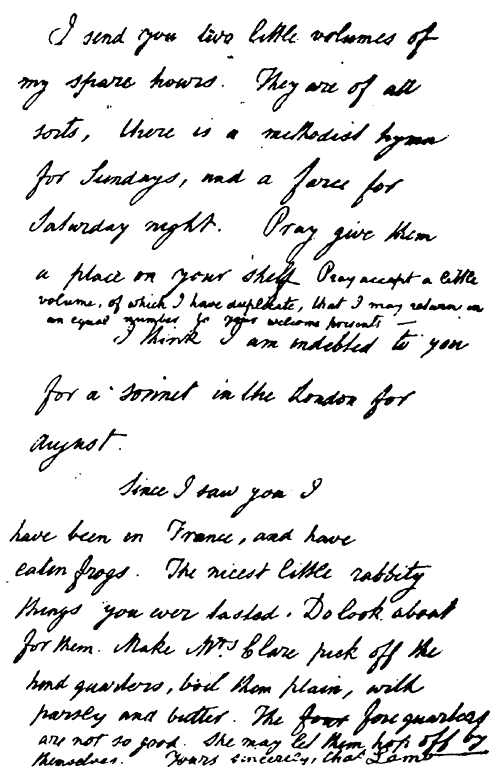 I send you two little volumes of
my spare hours. They are of all
sorts, there is a methodist hymn
for Sundays, and a farce for
Saturday night. Pray give them
a place on your shelf. Pray accept a little
volume, of which I have duplicate, that I may return in
an equal number to your welcome presents —
I think I am indebted to you
for a sonnet in the London for
August.
Since I saw you I
have been in France, and have
eaten frogs. The nicest little rabbity
things you ever tasted. Do look about
for them. Make Mrs Clare pick off the
hind quarters, boil them plain, with
parsley and butter. The four fore quarters
are not so good. She may let them hop off by
themselves. Yours sincerely, Chas Lamb